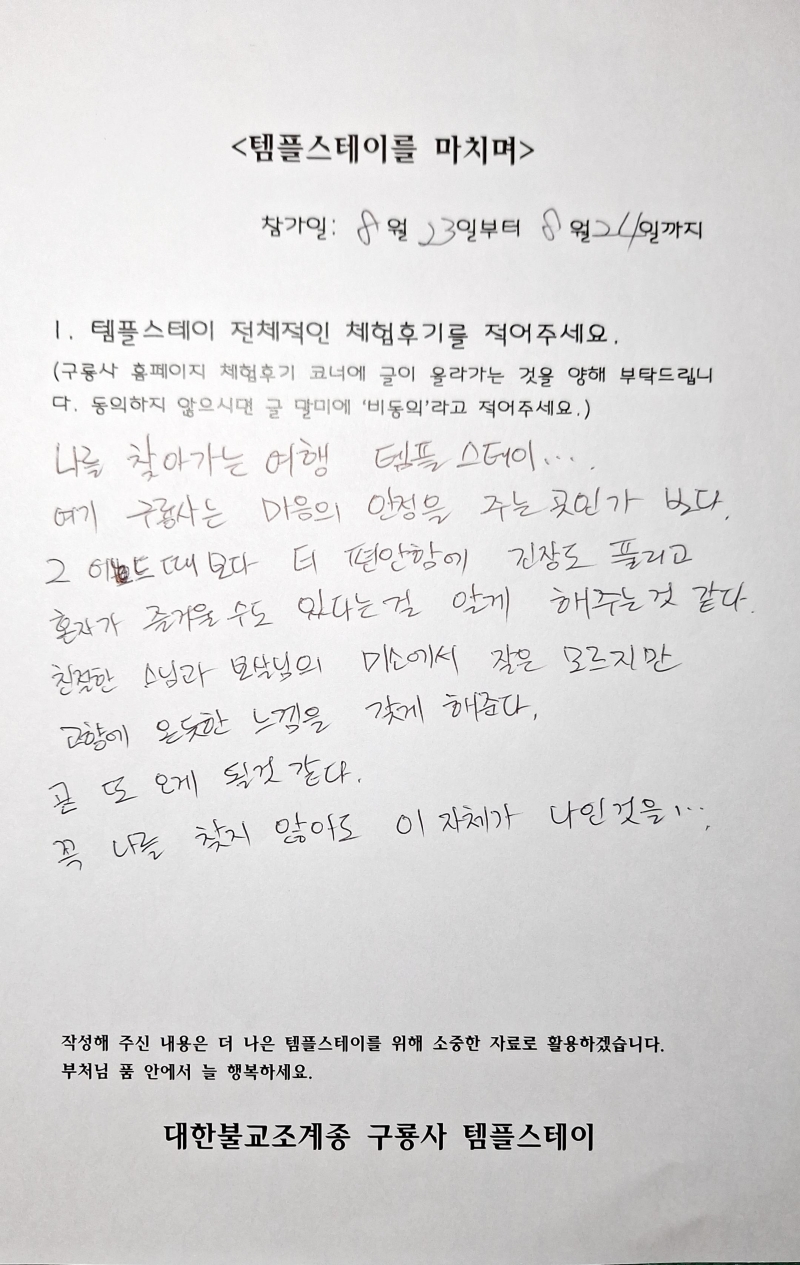 <템플스테이를 마치며>
참가일: 8월 23일부터 8월24일까지
1. 템플스테이 전체적인 체험후기를 적어주세요.
(구룡사 홈페이지 체험후기 코너에 글이 올라가는 것을 양해 부탁드립니
다. 동의하지 않으시면 글 말미에 '비동의'라고 적어주세요.)
나를 찾아가는 여행 템플스테이....
여기 구룡사는 마음의 안정을 주는 곳인가 보다.
그 어느 때보다 더 편안함에 긴장도 풀리고
혼자가 즐거울 수도 있다는걸 알게 해주는것 같다.
친절한 스님과 보살님의 미소에서 잘은 모르지만
고향에 온듯한 느낌을 갖게 해준다.
곧 또 오게 될것 같다.
꼭 나를 찾지 않아도 이 자체가 나인것을....
작성해 주신 내용은 더 나은 템플스테이를 위해 소중한 자료로 활용하겠습니다.
부처님 품 안에서 늘 행복하세요.
대한불교조계종 구룡사 템플스테이